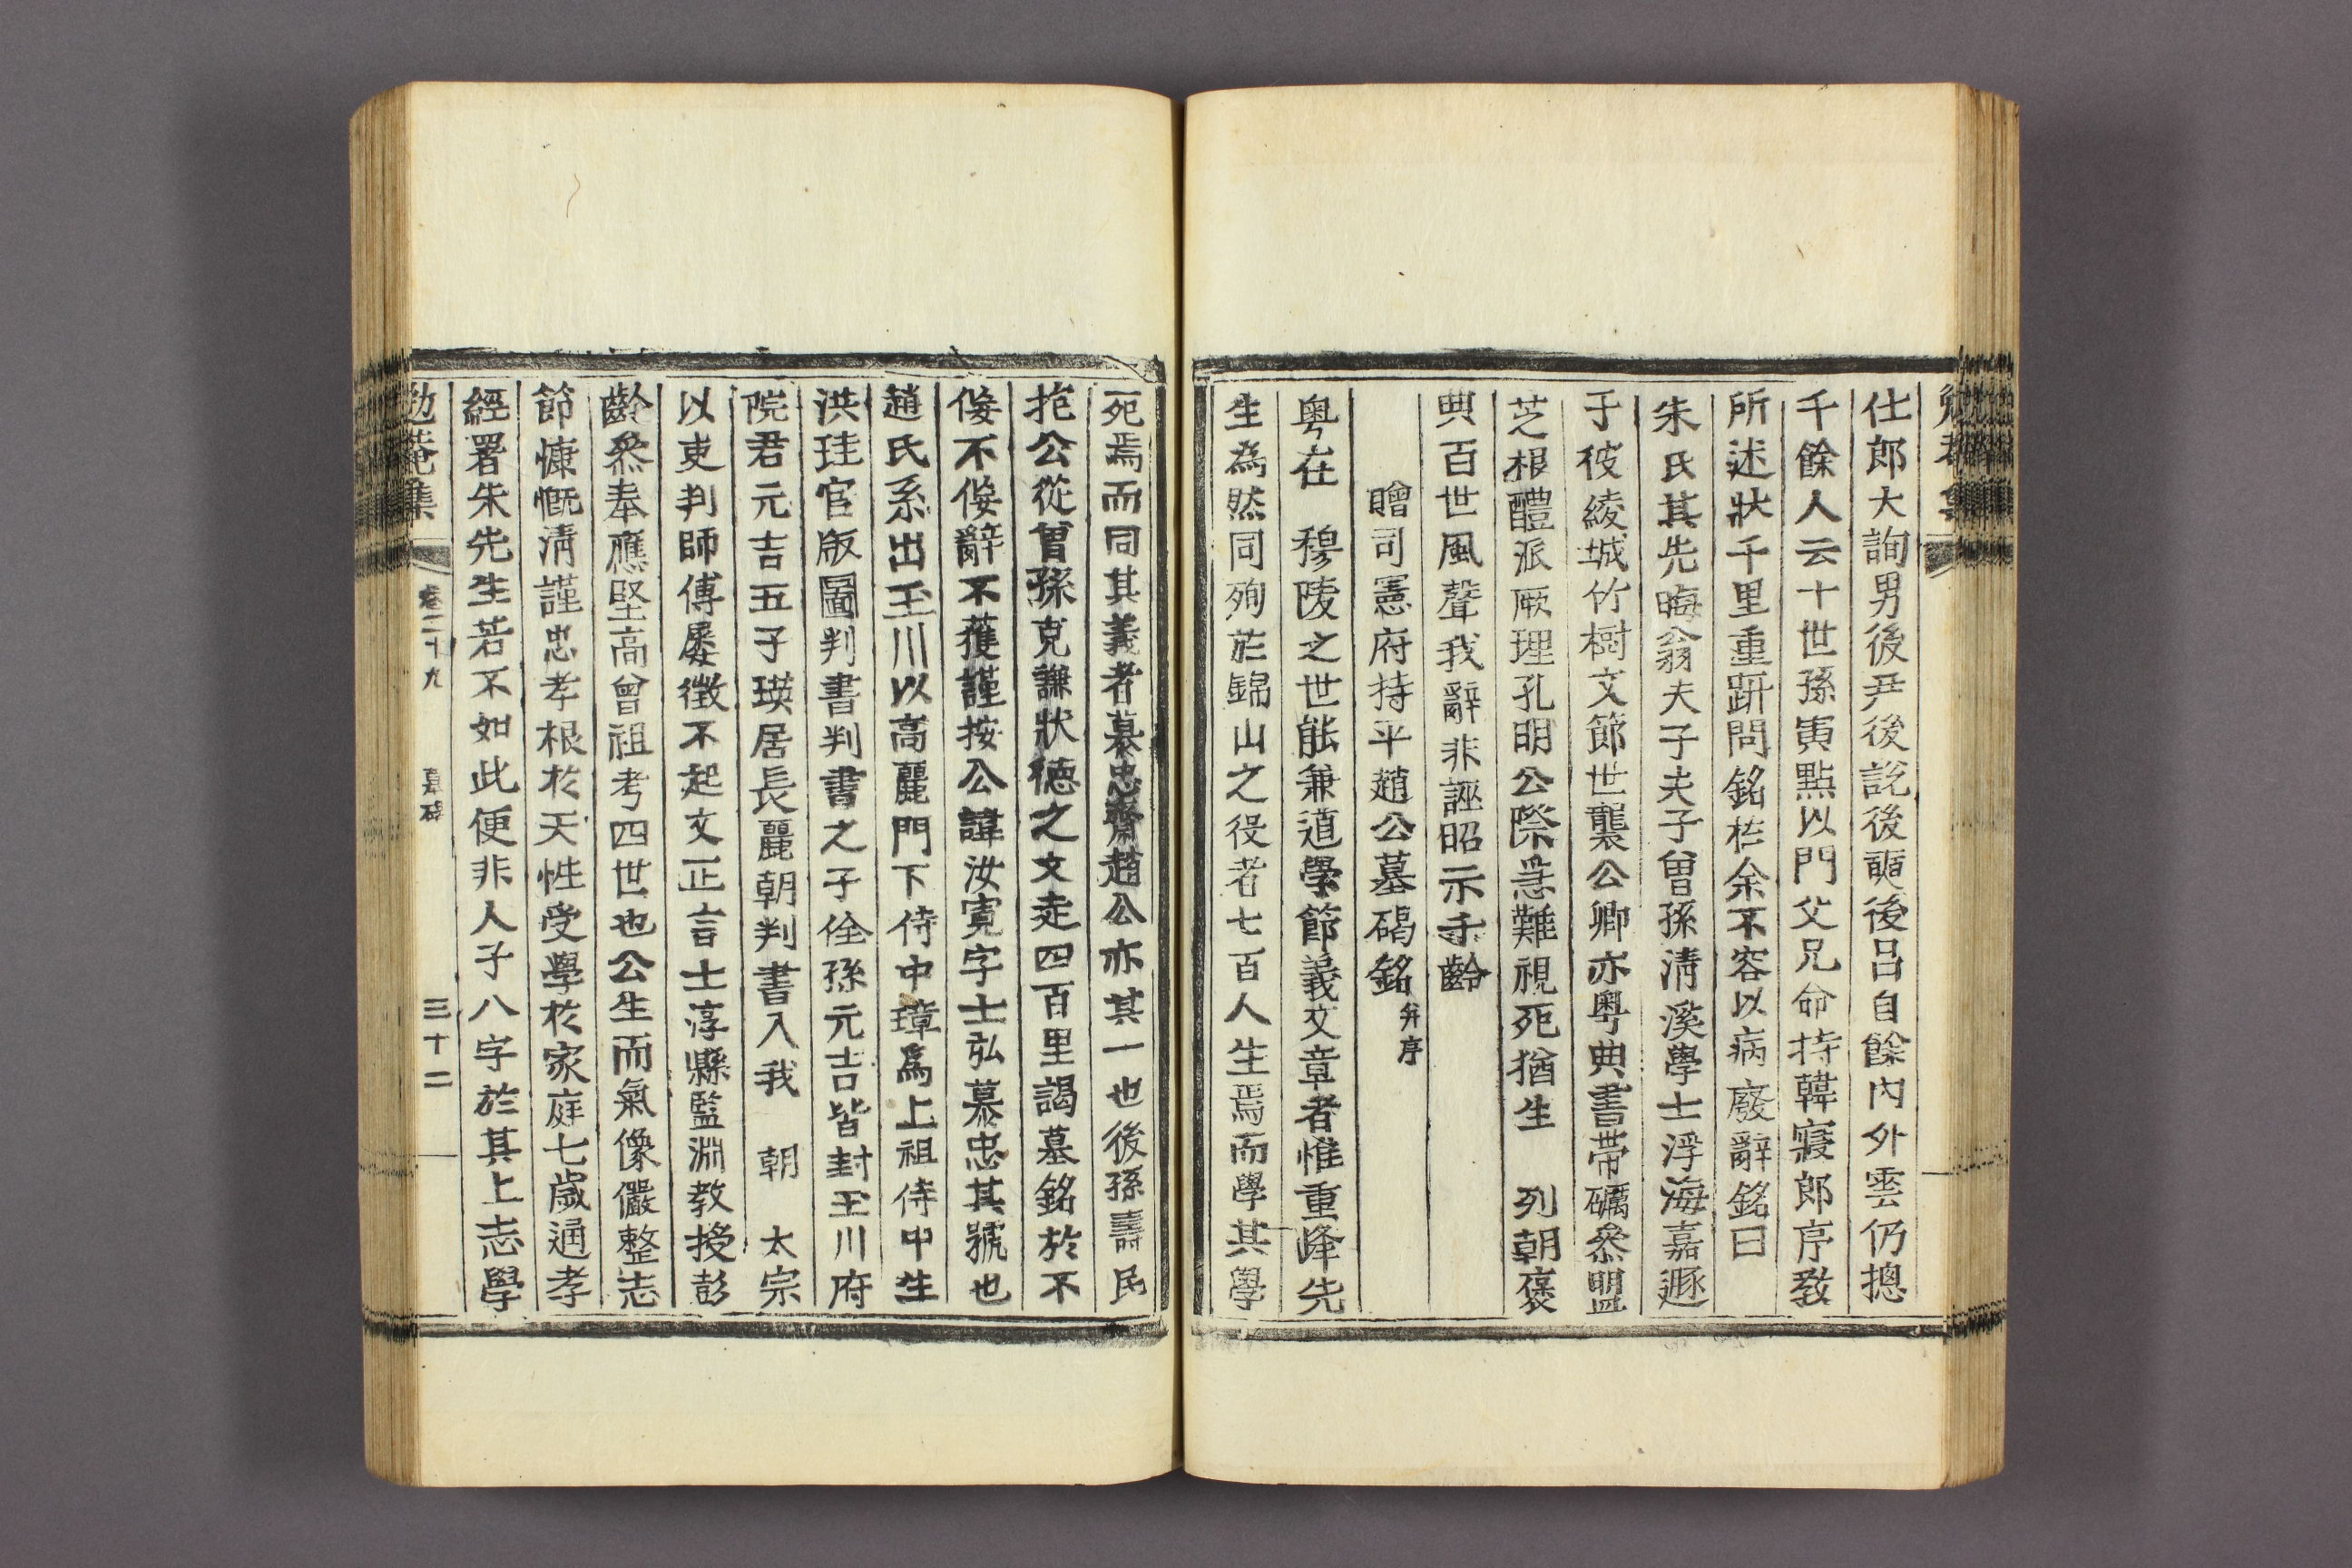 仕郎大詢男後尹後說後頤後呂自餘內外雲仍摠
千餘人云十世孫寅點以門父兄命持韓寢郎序教
所述狀千里重趼問銘於余不容以病廢辭銘曰
朱氏其先晦翁夫子夫子曾孫淸溪學士浮海嘉遯
于彼綾城竹樹文節世襲公卿亦粤典書帶礪叅盟
芝根醴派厥理孔明公際急難視死猶生 列朝褒
典百世風聲我辭非誣昭示千齡
贈司憲府持平趙公墓碣銘 幷序
粤在 穆陵之世能兼道學節義文章者惟重峰先
生為然同殉於錦山之役者七百人生焉而學其學
死焉而同其義者慕忠齋趙公亦其一也後孫壽民
抱公從曾孫克謙狀德之文走四百里謁墓銘於不
佞不佞辭不獲謹按公諱汝寬字士弘慕忠其號也
趙氏系出玉川以高麗門下侍中璋爲上祖侍中生
洪珪官版圖判書判書之子佺孫元吉皆封玉川府
院君元吉五子瑛居長麗朝判書入我 朝 太宗
以吏判師傅屢徵不起文正言士淳縣監淵教授彭
齡叅奉應堅高曾祖考四世也公生而氣像儼整志
節慷慨淸謹忠孝根於天性受學於家庭七歲通孝
經署朱先生若不如此便非人子八字於其上志學
勉菴集 卷二十九 墓碑 三十二